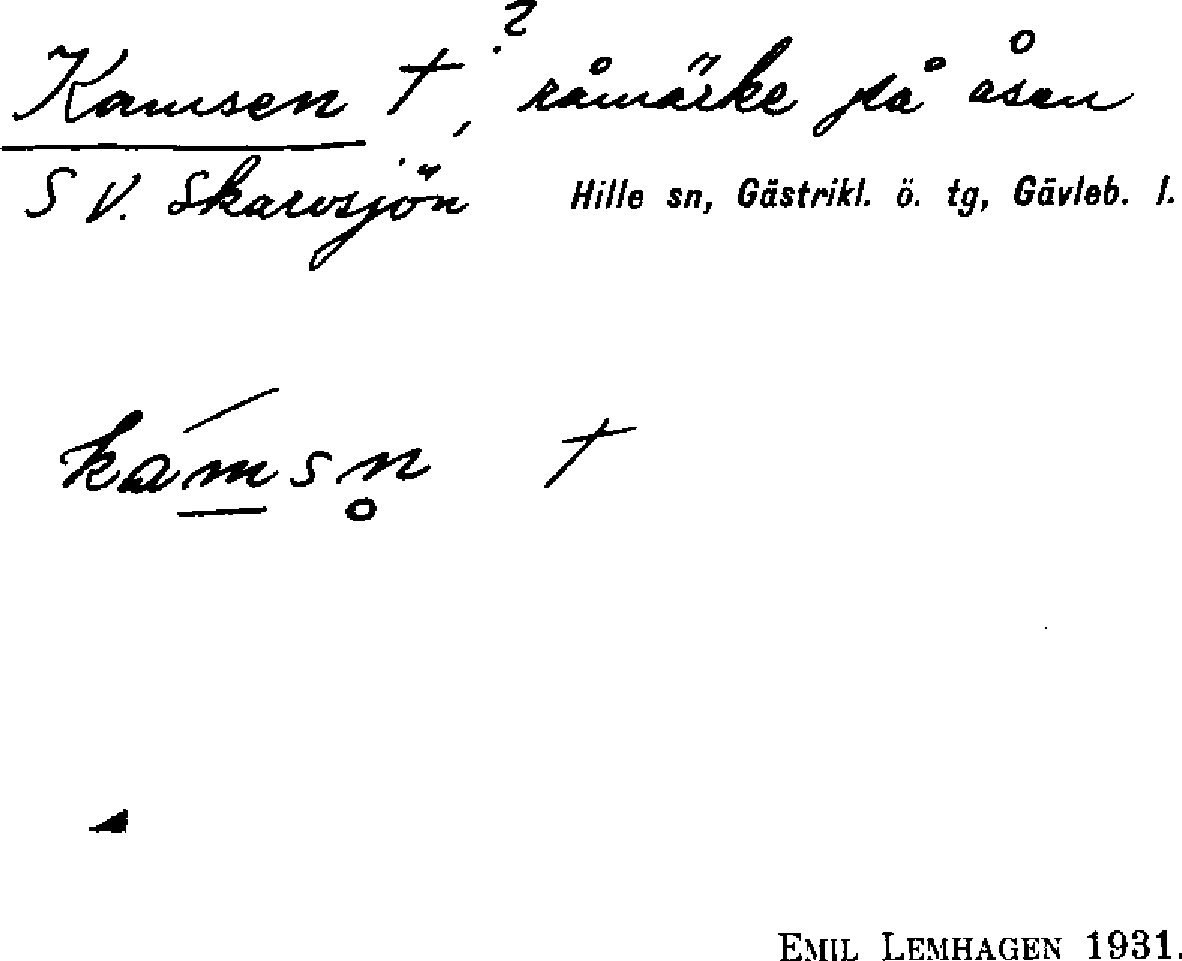 Kamsen †,? råmärke på åsen
S V. Skarvsjön Hille sn, Gästrikl. ö. tg, Gävleb. l.
kamsn̥ †
EMIL LEMHAGEN 1931.